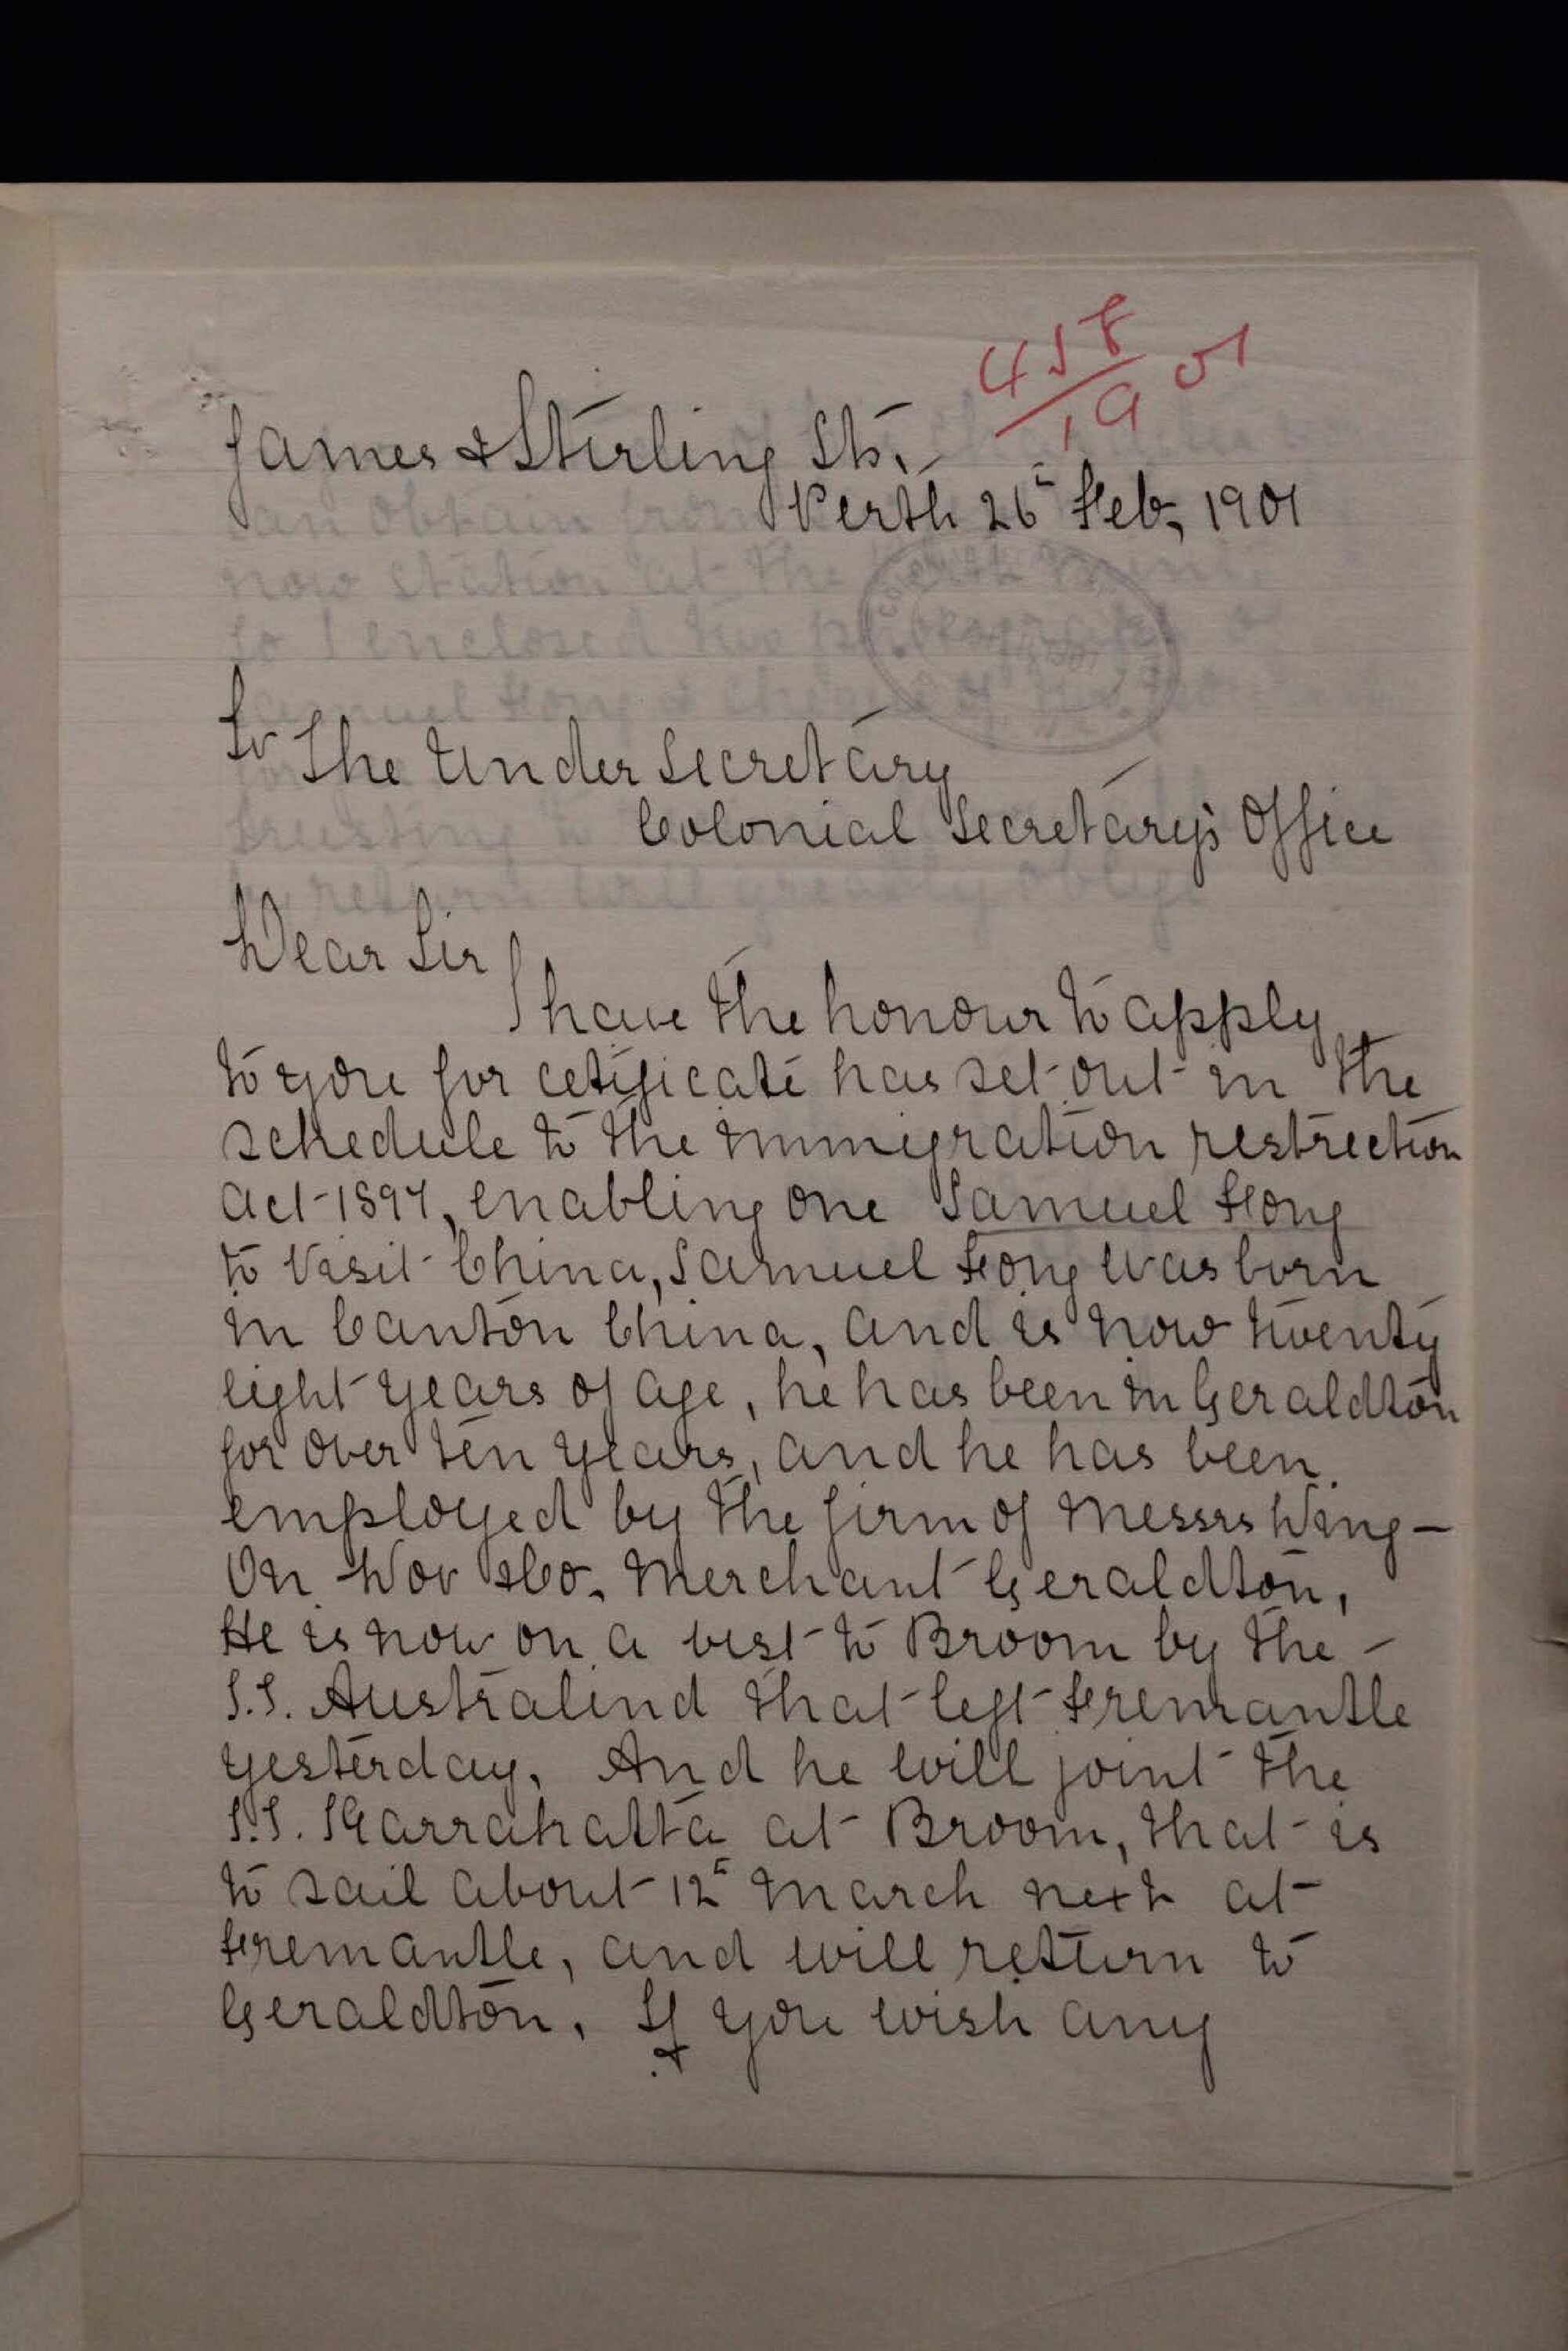 458
/19 01
James & Stirling Sts.
Perth 26th Feb, 1901
To The Under Secretary
Colonial Secretary's Office
Dear Sir
I have the honour to apply
to you for cetificate has set out in the
schedule to the Immigration restriction
act 1897, enabling one Samuel Hong
to Visit China, Samuel Hong was born
in Canton China, and is now twenty
eight years of age, he has been in Geraldton
for over ten years, and he has been
employed by the firm of Messrs Wing -
On Wor & Co. Merchant Geraldton,
He is now on a visit to Broom by the -
S.S. Australind that left Fremantle
yesterday. And he will joint the
S.S. Karrakatta at Broom, that is
to sail about 12th March next at
Fremantle, and will return to
Geraldton. If you wish any